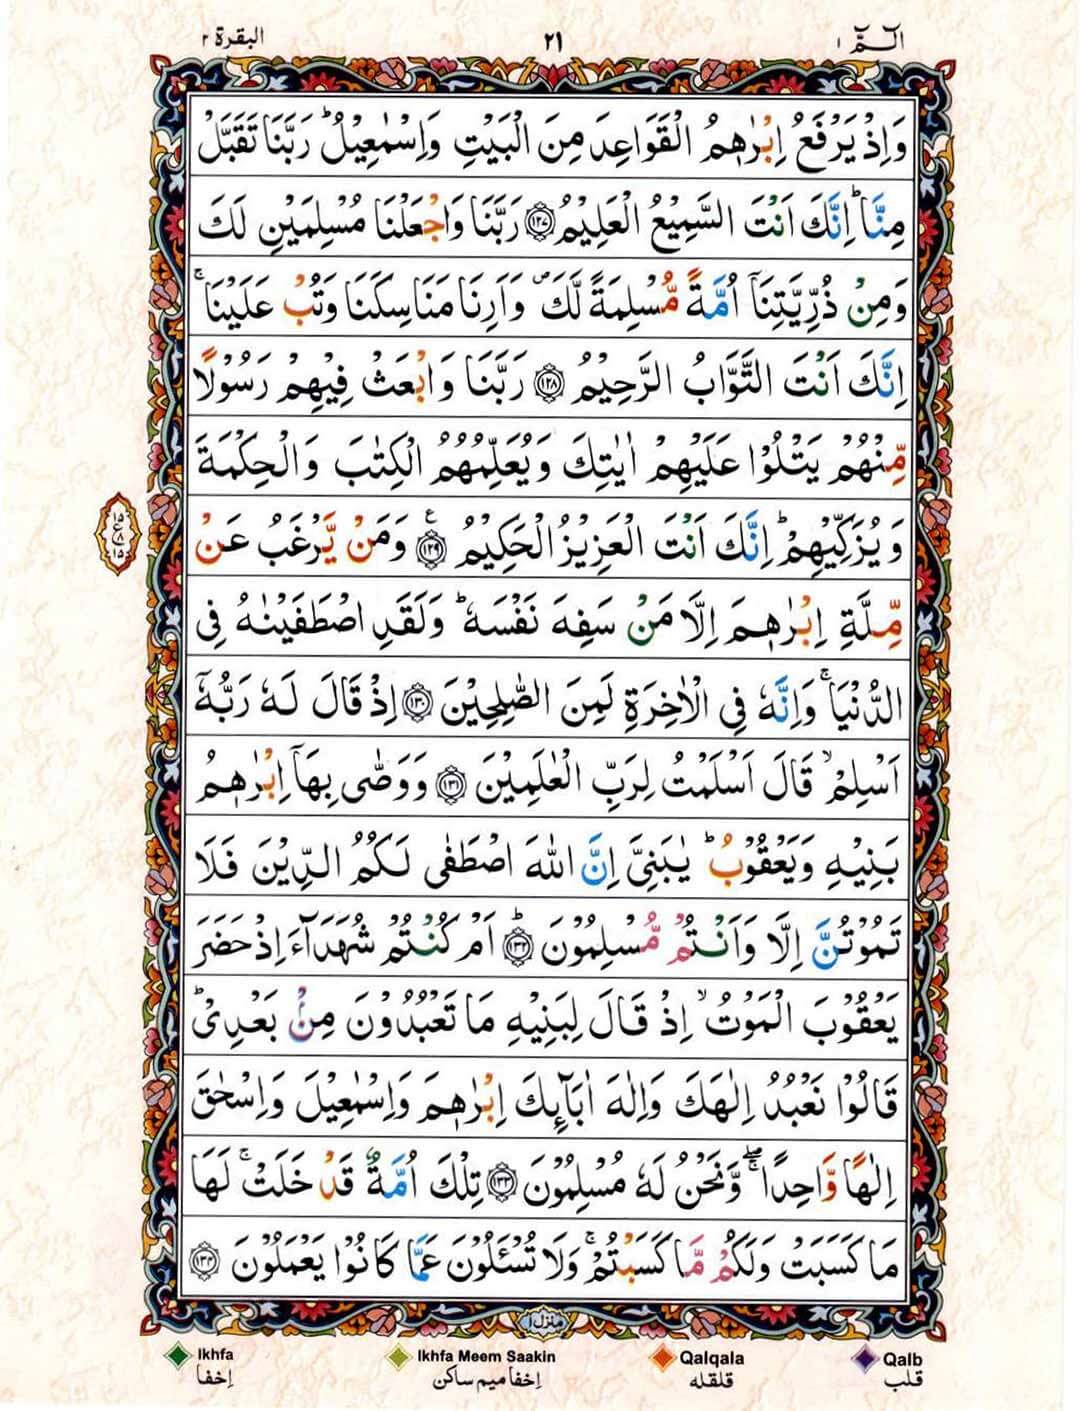 الٓمّٓ ۱
۲۱
البقرة ۲
وَاِذْ يَرْفَعُ اِبْرٰهٖمُ الْقَوَاعِدَ مِنَ الْبَيْتِ وَاِسْمٰعِيْلُ ؕ رَبَّنَا تَقَبَّلْ
مِنَّا ؕ اِنَّكَ اَنْتَ السَّمِيْعُ الْعَلِيْمُ ﴿۱۲۷﴾ رَبَّنَا وَاجْعَلْنَا مُسْلِمَيْنِ لَكَ
وَمِنْ ذُرِّيَّتِنَاۤ اُمَّةً مُّسْلِمَةً لَّكَ ۪ وَاَرِنَا مَنَاسِكَنَا وَتُبْ عَلَيْنَا ۚ
اِنَّكَ اَنْتَ التَّوَّابُ الرَّحِيْمُ ﴿۱۲۸﴾ رَبَّنَا وَابْعَثْ فِيْهِمْ رَسُوْلًا
مِّنْهُمْ يَتْلُوْا عَلَيْهِمْ اٰيٰتِكَ وَيُعَلِّمُهُمُ الْكِتٰبَ وَالْحِكْمَةَ
وَيُزَكِّيْهِمْ ؕ اِنَّكَ اَنْتَ الْعَزِيْزُ الْحَكِيْمُ ﴿۱۲۹﴾ ع وَمَنْ يَّرْغَبُ عَنْ
مِّلَّةِ اِبْرٰهٖمَ اِلَّا مَنْ سَفِهَ نَفْسَهٗ ؕ وَلَقَدِ اصْطَفَيْنٰهُ فِى
الدُّنْيَا ۚ وَاِنَّهٗ فِى الْاٰخِرَةِ لَمِنَ الصّٰلِحِيْنَ ﴿۱۳۰﴾ اِذْ قَالَ لَهٗ رَبُّهٗۤ
اَسْلِمْ ۙ قَالَ اَسْلَمْتُ لِرَبِّ الْعٰلَمِيْنَ ﴿۱۳۱﴾ وَوَصّٰى بِهَاۤ اِبْرٰهٖمُ
بَنِيْهِ وَيَعْقُوْبُ ؕ يٰبَنِىَّ اِنَّ اللّٰهَ اصْطَفٰى لَكُمُ الدِّيْنَ فَلَا
تَمُوْتُنَّ اِلَّا وَاَنْتُمْ مُّسْلِمُوْنَ ﴿۱۳۲﴾ ؕ اَمْ كُنْتُمْ شُهَدَآءَ اِذْ حَضَرَ
يَعْقُوْبَ الْمَوْتُ ۙ اِذْ قَالَ لِبَنِيْهِ مَا تَعْبُدُوْنَ مِنْۢ بَعْدِىْ ؕ
قَالُوْا نَعْبُدُ اِلٰهَكَ وَاِلٰهَ اٰبَآئِكَ اِبْرٰهٖمَ وَاِسْمٰعِيْلَ وَاِسْحٰقَ
اِلٰهًا وَّاحِدًا ۖۚ وَّنَحْنُ لَهٗ مُسْلِمُوْنَ ﴿۱۳۳﴾ تِلْكَ اُمَّةٌ قَدْ خَلَتْ ۚ لَهَا
مَا كَسَبَتْ وَلَكُمْ مَّا كَسَبْتُمْ ۚ وَلَا تُسْـَٔلُوْنَ عَمَّا كَانُوْا يَعْمَلُوْنَ ﴿۱۳۴﴾
۱۵
ع ۸
۱۵
منزل ۱
Ikhfa
Ikhfa Meem Saakin
Qalqala
Qalb
إخفا
إخفا ميم ساكن
قلقله
قلب